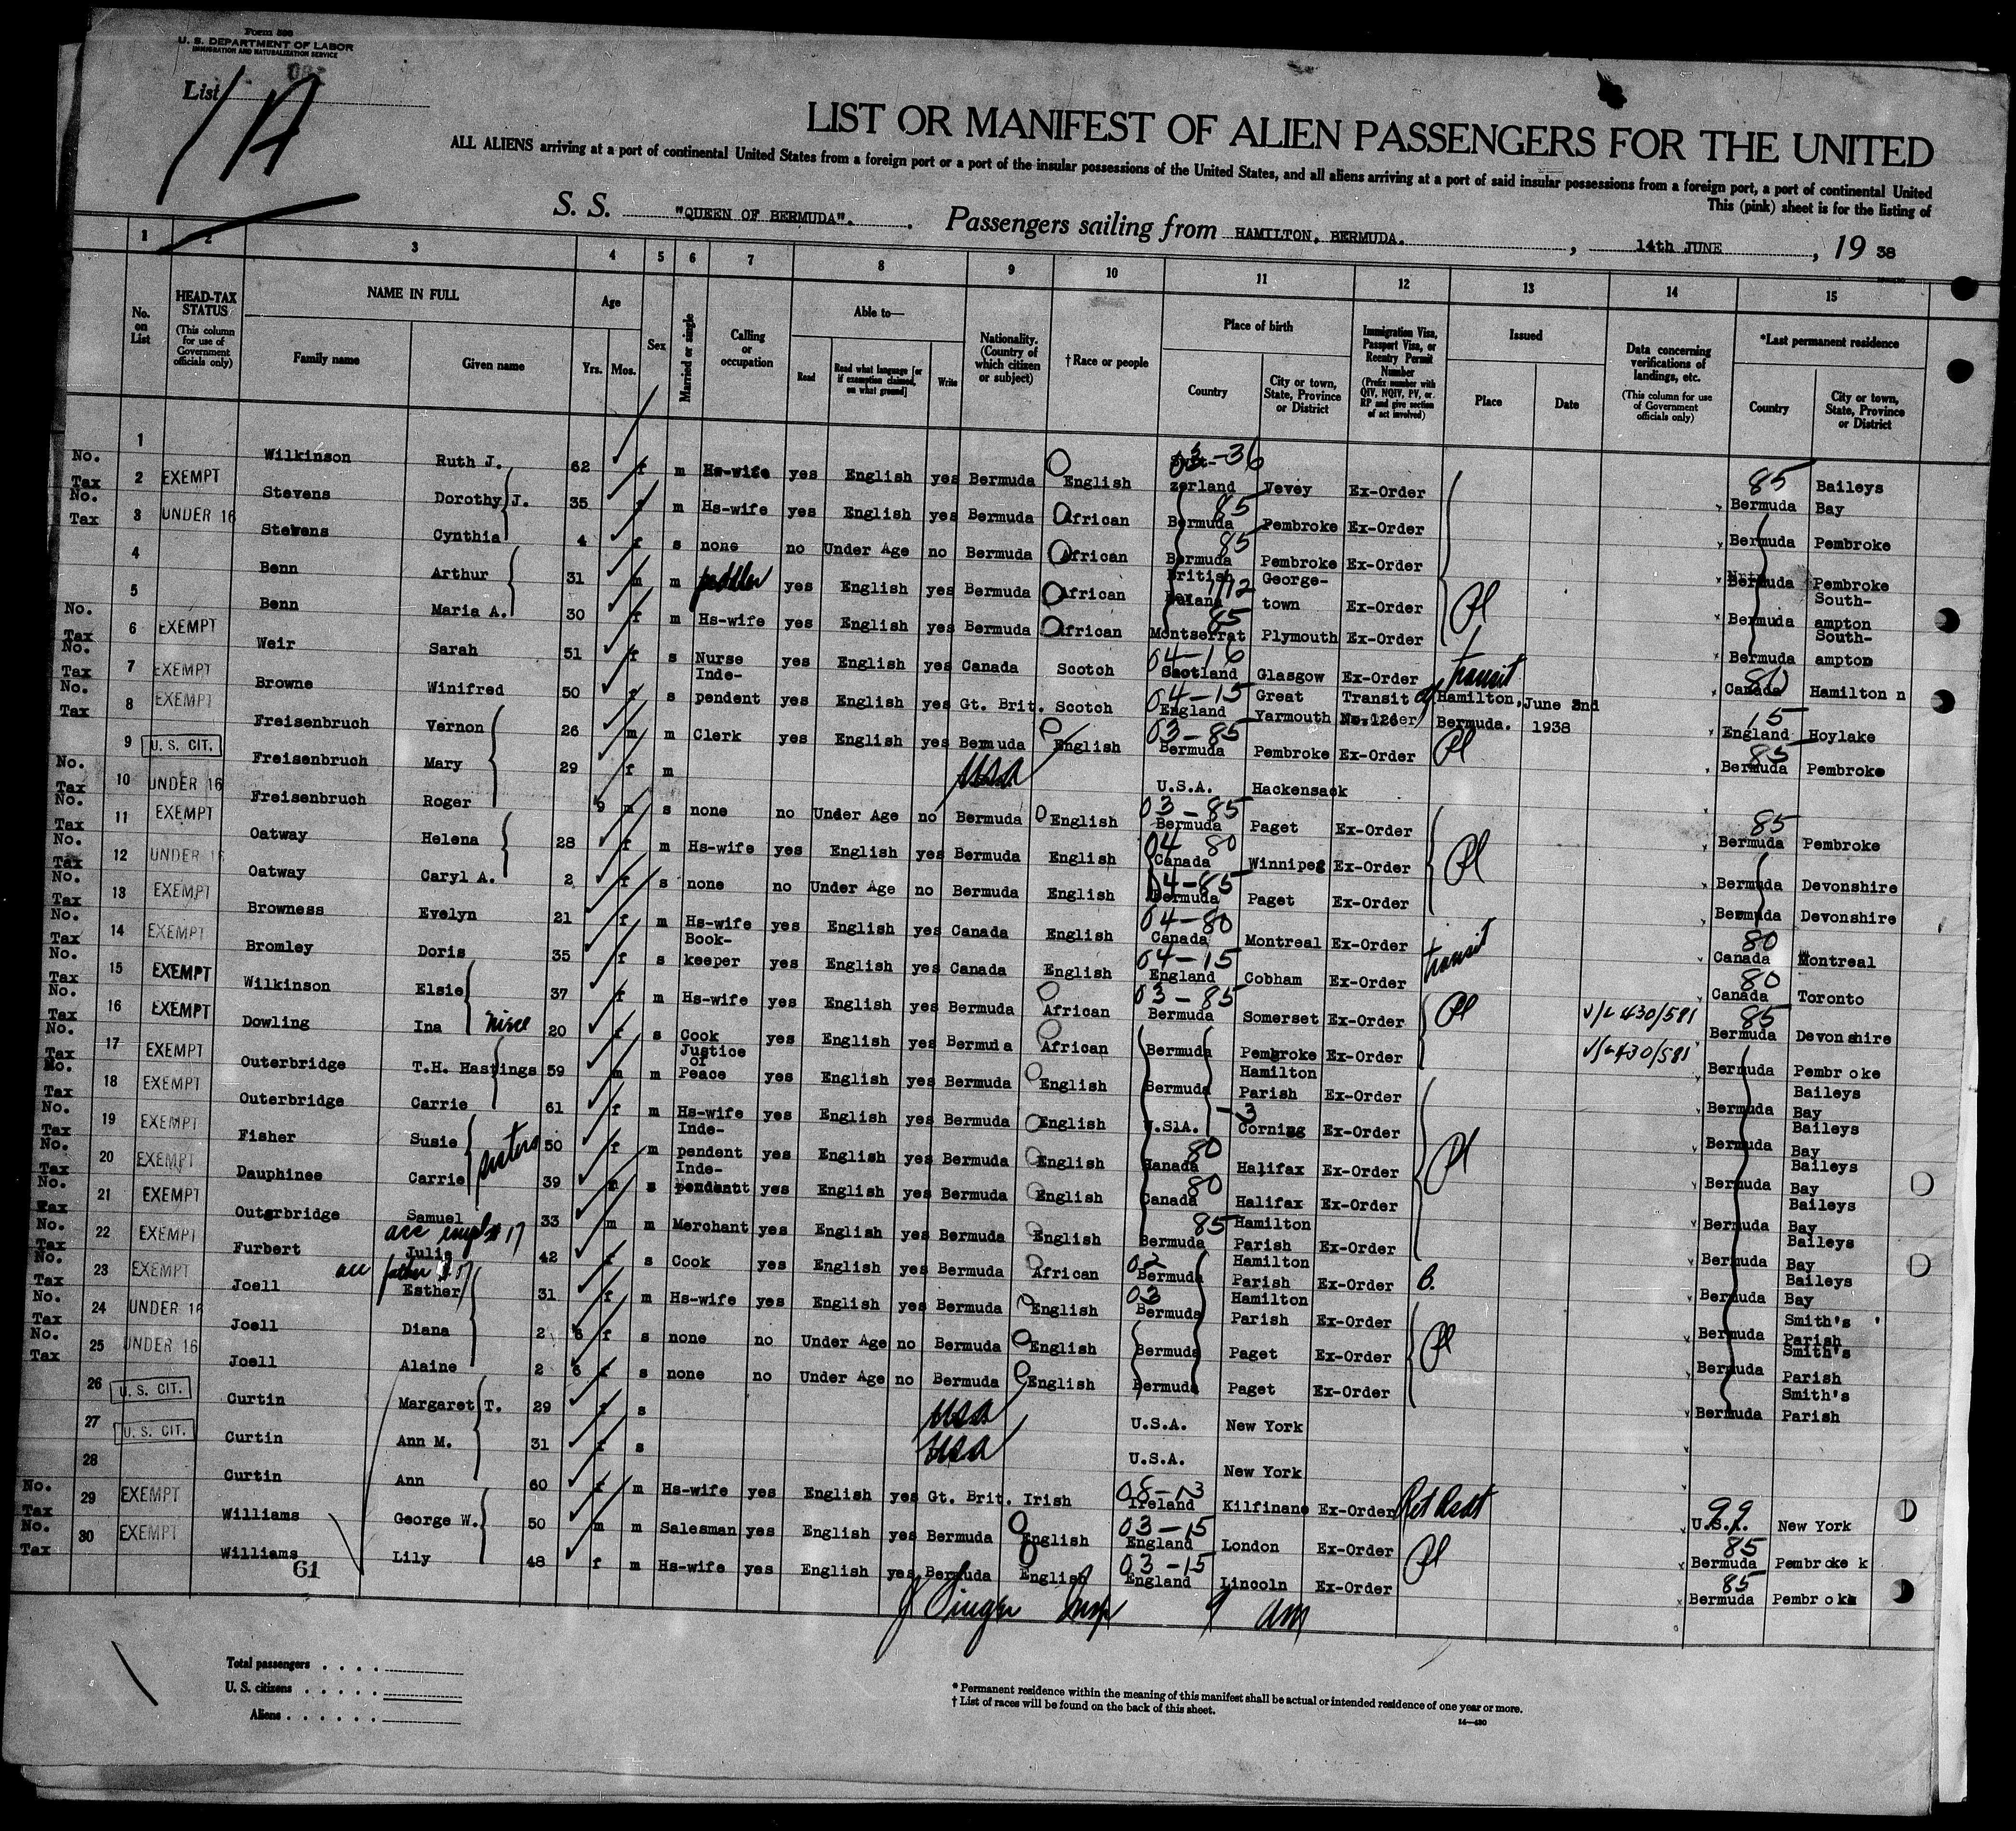 Form 500
U. S. DEPARTMENT OF LABOR
IMMIGRATION AND NATURALIZATION SERVICE
List 1A
LIST OR MANIFEST OF ALIEN PASSENGERS FOR THE UNITED
ALL ALIENS arriving at a port of continental United States from a foreign port or a port of the insular possessions of the United States, and all aliens arriving at a port of said insular possessions from a foreign port, a port of continental United
This (pink) sheet is for the listing of
S. S. "QUEEN OF BERMUDA". Passengers sailing from HAMILTON, BERMUDA. , 14th JUNE , 19 38
1 2 3 4 5 6 7 8 9 10 11 12 13 14 15
No. on List
HEAD-TAX STATUS (This column for use of Government officials only)
NAME IN FULL Family name Given name
Age Yrs. Mos.
Sex
Married or single
Calling or occupation
Able to— Read Read what language [or if exemption claimed, on what ground] Write
Nationality. (Country of which citizen or subject)
† Race or people
Place of birth Country City or town, State, Province or District
Immigration Visa, Passport Visa, or Reentry Permit Number (Prefix number with QIV, NQIV, PV, or RP and give section of act involved)
Issued Place Date
Data concerning verifications of landings, etc. (This column for use of Government officials only)
*Last permanent residence Country City or town, State, Province or District
1 Wilkinson Ruth J. 62 f m Hs-wife yes English yes Bermuda English Swit-zerland 03-36 Vevey Ex-Order 85 Bermuda Baileys Bay
No. Tax 2 EXEMPT Stevens Dorothy J. 35 f m Hs-wife yes English yes Bermuda African Bermuda 85 Pembroke Ex-Order Bermuda Pembroke
No. Tax 3 UNDER 16 Stevens Cynthia 4 f s none no Under Age no Bermuda African Bermuda 85 Pembroke Ex-Order Bermuda Pembroke
4 Benn Arthur 31 m m peddler yes English yes Bermuda African British George-town Ex-Order Pl Bermuda South-ampton
5 Benn Maria A. 30 f m Hs-wife yes English yes Bermuda African Montserrat 85 Plymouth Ex-Order Bermuda South-ampton
No. Tax 6 EXEMPT Weir Sarah 51 f s Nurse yes English yes Canada Scotch Scotland 04-16 Glasgow Ex-Order transit Canada 80 Hamilton n
No. Tax 7 EXEMPT Browne Winifred 50 f s Inde-pendent yes English yes Gt. Brit. Scotch 04-15 England Great Yarmouth Transit No.126 Hamilton, Bermuda. June 2nd 1938 15 England Hoylake
No. Tax 8 EXEMPT Freisenbruch Vernon 26 m m Clerk yes English yes Bermuda English 03-85 Bermuda Pembroke Ex-Order Pl 85 Bermuda Pembroke
9 U. S. CIT. Freisenbruch Mary 29 f m USA U.S.A. Hackensack
No. Tax 10 UNDER 16 Freisenbruch Roger 9 m s none no Under Age no Bermuda English 03-85 Bermuda Paget Ex-Order 85 Bermuda Pembroke
No. Tax 11 EXEMPT Oatway Helena 28 f m Hs-wife yes English yes Bermuda English 04 80 Canada Winnipeg Ex-Order Pl Bermuda Devonshire
No. Tax 12 UNDER 16 Oatway Caryl A. 2 f s none no Under Age no Bermuda English 04-85 Bermuda Paget Ex-Order Bermuda Devonshire
No. Tax 13 EXEMPT Browness Evelyn 21 f m Hs-wife yes English yes Canada English 04-80 Canada Montreal Ex-Order transit 80 Canada Montreal
No. Tax 14 EXEMPT Bromley Doris 35 f s Book-keeper yes English yes Canada English 04-15 England Cobham Ex-Order 80 Canada Toronto
No. Tax 15 EXEMPT Wilkinson Elsie 37 f m Hs-wife yes English yes Bermuda African 03-85 Bermuda Somerset Ex-Order Pl V/L 430/581 85 Bermuda Devonshire
No. Tax 16 EXEMPT Dowling Ina niece 20 f s Cook yes English yes Bermuda African Bermuda Pembroke Ex-Order V/L 430/581 Bermuda Pembroke
No. Tax 17 EXEMPT Outerbridge T.H. Hastings 59 m m Justice of Peace yes English yes Bermuda English Bermuda Hamilton Parish Ex-Order Bermuda Baileys Bay
No. Tax 18 EXEMPT Outerbridge Carrie 61 f m Hs-wife yes English yes Bermuda English U.S.A. Corning Ex-Order Bermuda Baileys Bay
No. Tax 19 EXEMPT Fisher Susie sisters 50 f m Inde-pendent yes English yes Bermuda English Hanada 80 Halifax Ex-Order Pl Bermuda Baileys Bay
No. Tax 20 EXEMPT Dauphinee Carrie 39 s Inde-pendent yes English yes Bermuda English Canada 80 Halifax Ex-Order Bermuda Baileys Bay
No. Tax 21 EXEMPT Outerbridge Samuel 33 m m Merchant yes English yes Bermuda English Bermuda 85 Hamilton Parish Ex-Order Bermuda Baileys Bay
No. Tax 22 EXEMPT Furbert acc empl # 17 Julia 42 f s Cook yes English yes Bermuda African 02 Bermuda Hamilton Parish Ex-Order B. Bermuda Baileys Bay
No. Tax 23 EXEMPT Joell acc father Esther 31 f m Hs-wife yes English yes Bermuda English 03 Bermuda Hamilton Parish Ex-Order Bermuda Smith's Parish
No. Tax 24 UNDER 16 Joell Diana 2 6 f s none no Under Age no Bermuda English Bermuda Paget Ex-Order Pl Bermuda Smith's Parish
No. Tax 25 UNDER 16 Joell Alaine 2 6 f s none no Under Age no Bermuda English Bermuda Paget Ex-Order Bermuda Smith's Parish
26 U. S. CIT. Curtin Margaret T. 29 f s USA U.S.A. New York
27 U. S. CIT. Curtin Ann M. 31 f s USA U.S.A. New York
28 Curtin Ann 60 f m Hs-wife yes English yes Gt. Brit. Irish 08-13 Ireland Kilfinane Ex-Order Ret Resd 99 U.S.A. New York
No. Tax 29 EXEMPT Williams George W. 50 m m Salesman yes English yes Bermuda English 03-15 England London Ex-Order Pl 85 Bermuda Pembroke k
No. Tax 30 EXEMPT Williams Lily 48 f m Hs-wife yes English yes Bermuda English 03-15 England Lincoln Ex-Order 85 Bermuda Pembroke
61
J Singer Insp 9 am
Total passengers . . . .
U. S. citizens . . . . .
Aliens . . . . . .
* Permanent residence within the meaning of this manifest shall be actual or intended residence of one year or more.
† List of races will be found on the back of this sheet.
14—430